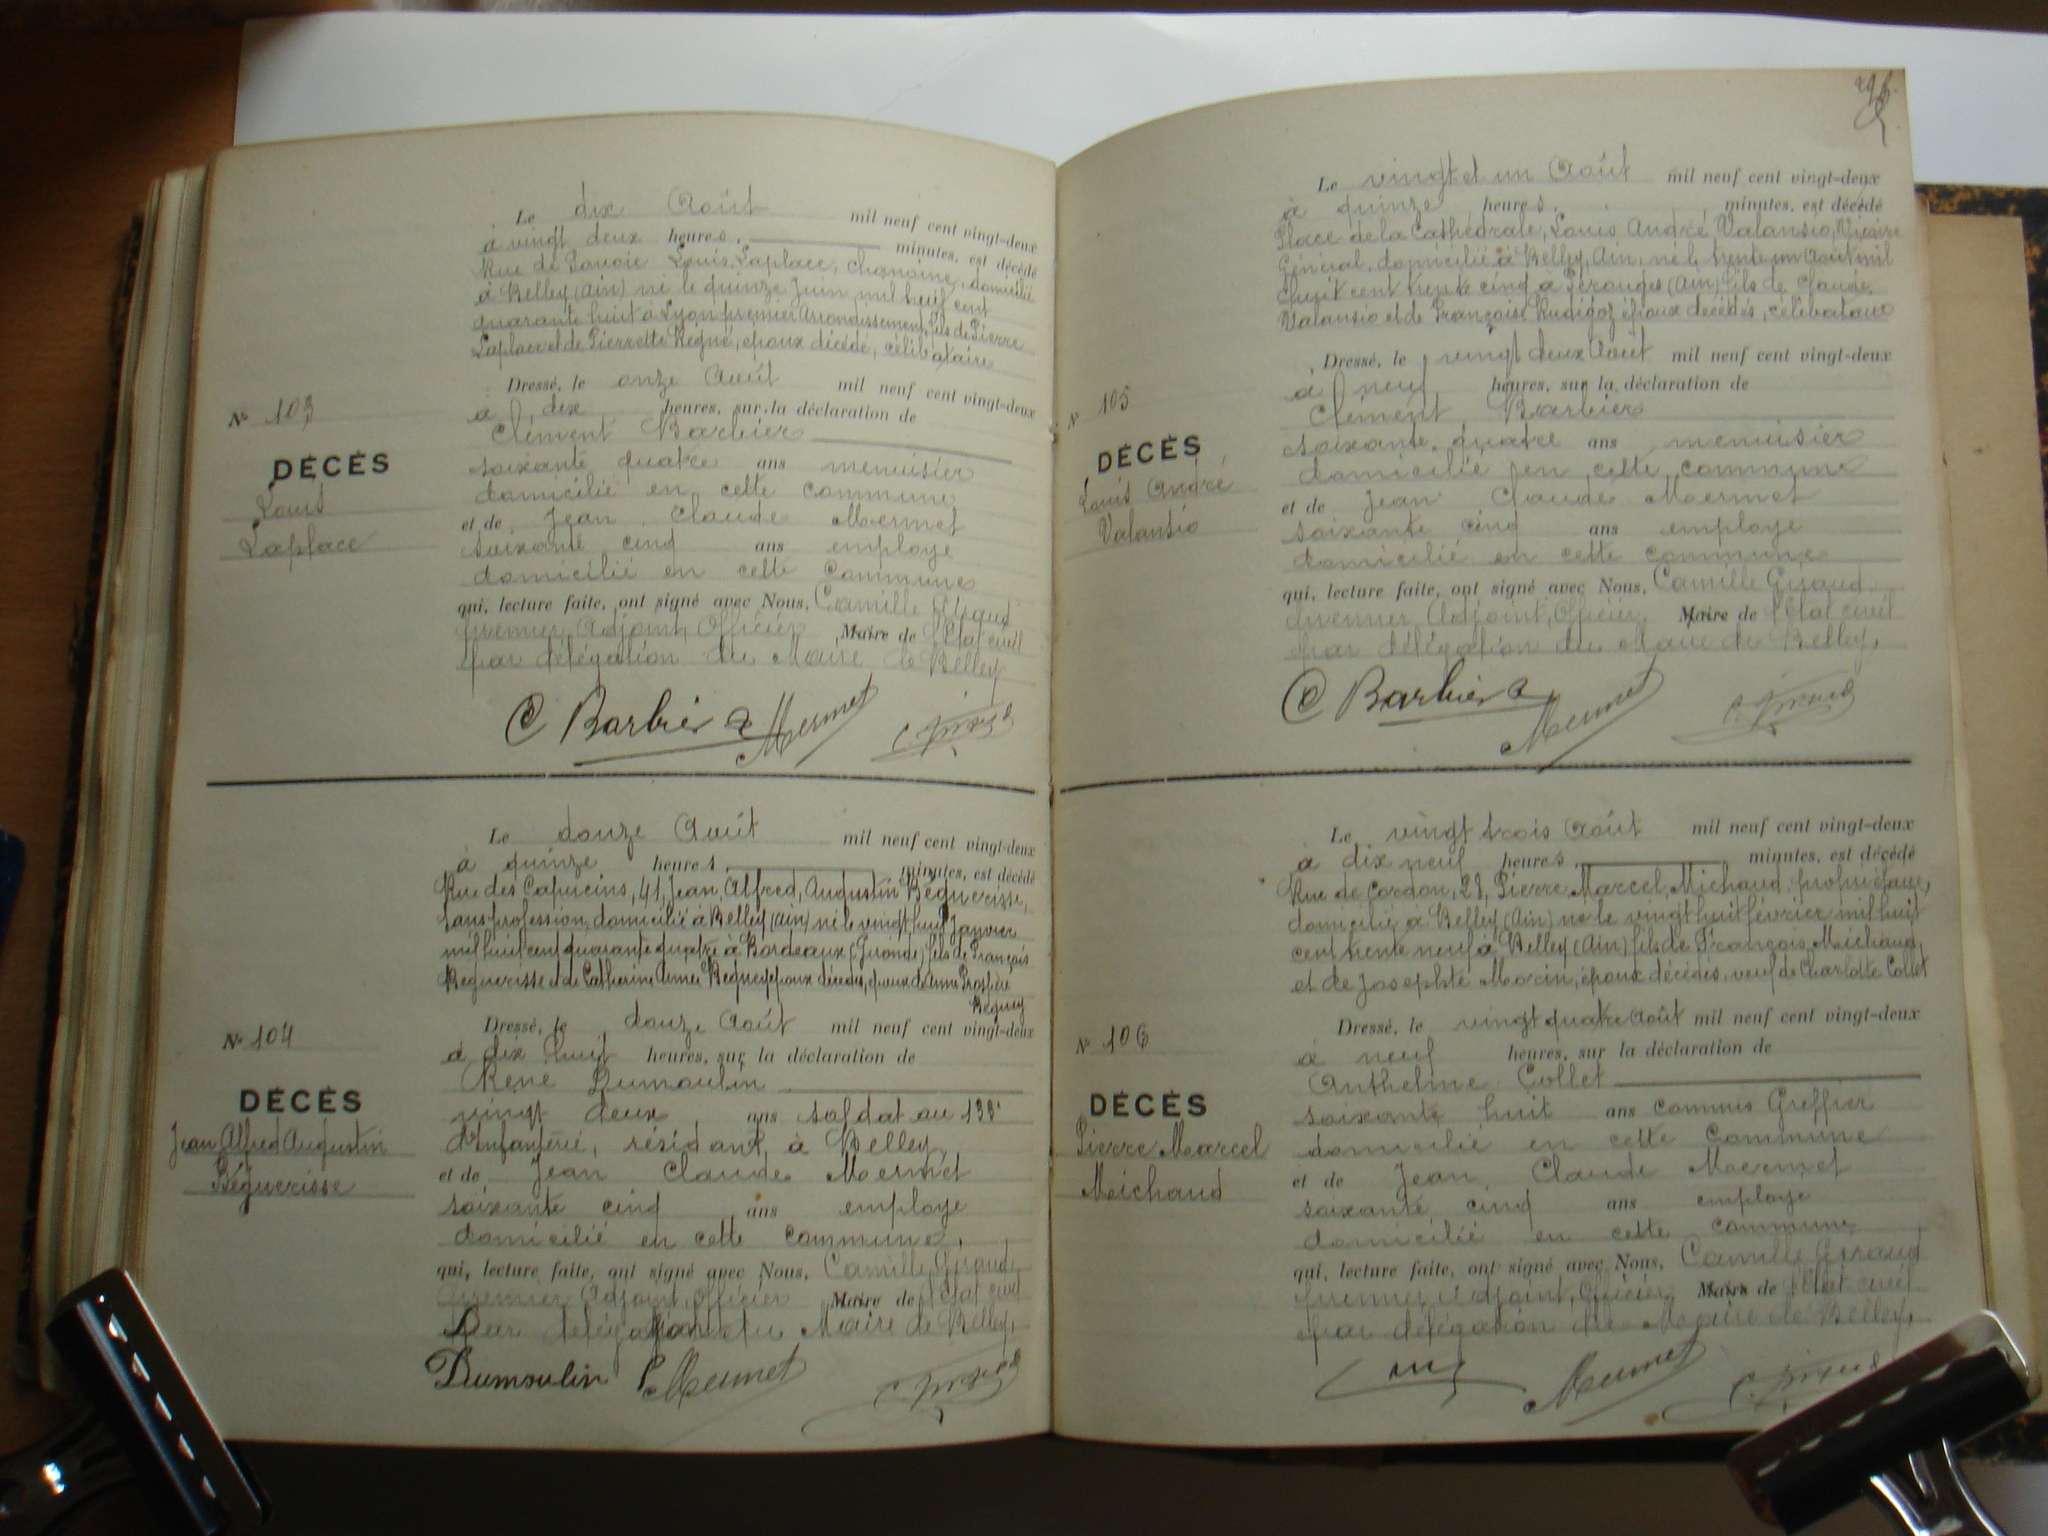 Le dix Août mil neuf cent vingt-deux
à vingt deux heures, minutes, est décédé
Rue de Savoie Louis Laplace, chanoine, domicilié
à Belley (Ain) né le quinze Juin mil huit cent
quarante huit à Lyon premier Arrondissement, fils de Pierre
Laplace et de Pierrette Régné, époux décédé, célibataire
Dressé, le onze Août mil neuf cent vingt-deux
à dix heures, sur la déclaration de
Clément Barbier
soixante quatre ans menuisier
domicilié en cette commune
et de Jean Claude Mermet
soixante cinq ans employé
domicilié en cette commune
qui, lecture faite, ont signé avec Nous, Camille Giraud
premier Adjoint, Officier Maire de l'Etat civil
par délégation du Maire de Belley
C Barbier Mermet C. Giraud
N° 103
DÉCÈS
Louis
Laplace
Le douze Août mil neuf cent vingt-deux
à quinze heures, minutes, est décédé
Rue des Capucins, 41, Jean, Alfred, Augustin Béguerisse,
sans profession, domicilié à Belley (Ain) né le vingt huit Janvier
mil huit cent quarante quatre à Bordeaux (Gironde) fils de François
Béguerisse et de Catherine Anne Béguey époux décédés, époux de Anne Prospère
Béguey
Dressé, le douze Août mil neuf cent vingt-deux
à dix huit heures, sur la déclaration de
René Dumoulin
vingt deux ans soldat au 133e
d'Infanterie, résidant à Belley,
et de Jean Claude Mermet
soixante cinq ans employé
domicilié en cette commune,
qui, lecture faite, ont signé avec Nous, Camille Giraud
premier Adjoint, Officier Maire de l'Etat civil
par délégation du Maire de Belley,
Dumoulin Mermet C. Giraud
N° 104
DÉCÈS
Jean Alfred Augustin
Béguerisse
Le vingt et un Août mil neuf cent vingt-deux
à quinze heures, minutes, est décédé
Place de la Cathédrale, Louis André Valansio, Vicaire
Général, domicilié à Belley, Ain, né le trente un Août mil
huit cent trente cinq à Pérouges (Ain) fils de Claude
Valansio et de Françoise Rudigoz époux décédés, célibataire
Dressé, le vingt deux Août mil neuf cent vingt-deux
à neuf heures, sur la déclaration de
Clément Barbier
soixante quatre ans menuisier
domicilié en cette commune
et de Jean Claude Mermet
soixante cinq ans employé
domicilié en cette commune
qui, lecture faite, ont signé avec Nous, Camille Giraud
premier Adjoint, Officier Maire de l'Etat civil
par délégation du Maire de Belley,
C Barbier Mermet C. Giraud
N° 105
DÉCÈS
Louis André
Valansio
Le vingt trois Août mil neuf cent vingt-deux
à dix neuf heures, minutes, est décédé
Rue de Cordon, 23, Pierre Marcel Michaud, propriétaire,
domicilié à Belley (Ain) né le vingt huit février mil huit
cent trente neuf à Belley (Ain) fils de François Michaud,
et de Josephte Morin, époux décédés, veuf de Charlotte Collet
Dressé, le vingt quatre Août mil neuf cent vingt-deux
à neuf heures, sur la déclaration de
Anthelme Collet
soixante huit ans commis Greffier
domicilié en cette commune
et de Jean Claude Mermet
soixante cinq ans employé
domicilié en cette commune
qui, lecture faite, ont signé avec Nous, Camille Giraud
premier Adjoint, Officier Maire de l'Etat civil
par délégation du Maire de Belley,
Mermet C. Giraud
N° 106
DÉCÈS
Pierre Marcel
Michaud